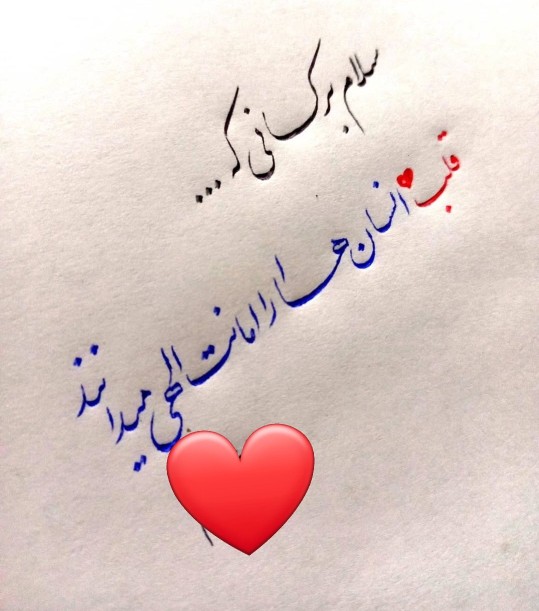 سلام بر کسانی که...
قلب انسان ها را امانت الهی میدانند